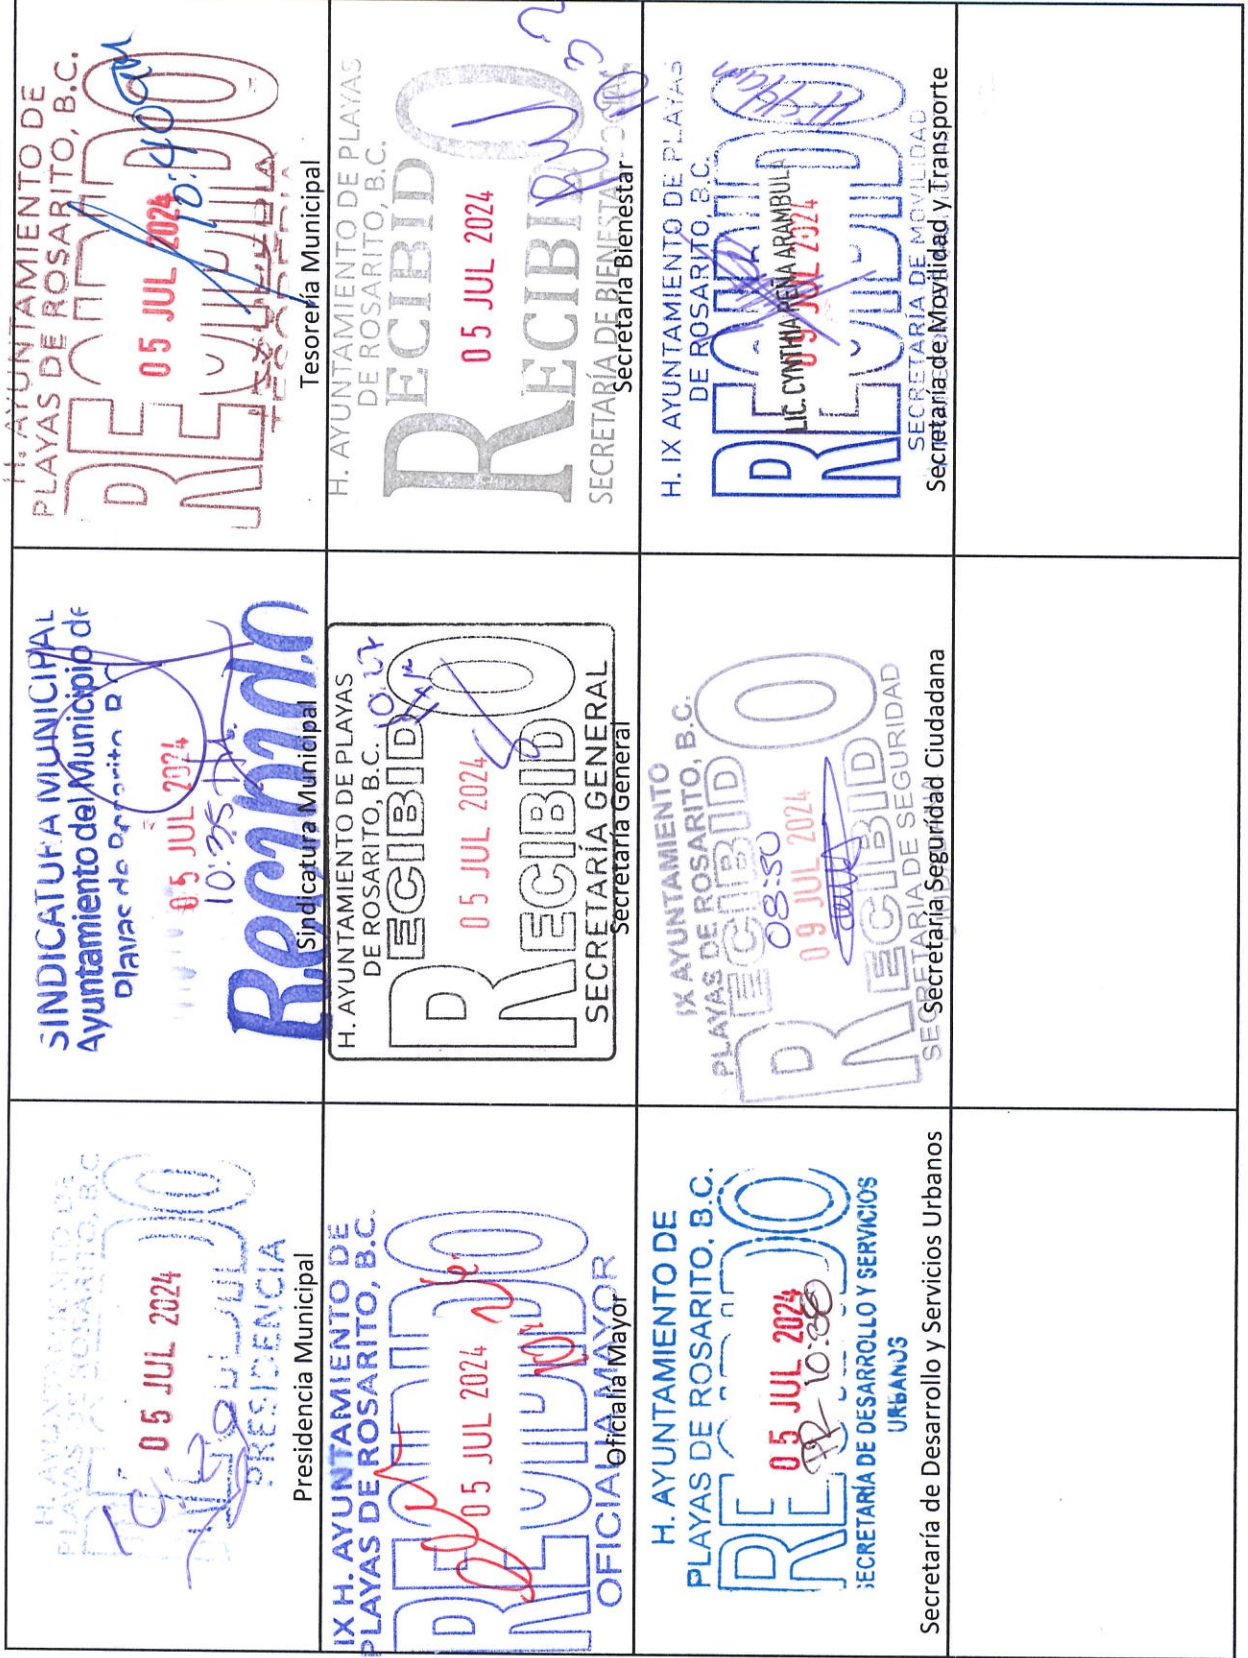 H. AYUNTAMIENTO DE
PLAYAS DE ROSARITO, B.C.
05 JUL 2024
PRESIDENCIA
Presidencia Municipal
SINDICATURA MUNICIPAL
Ayuntamiento del Municipio de
Playas de Rosarito B.C
05 JUL 2024
10:35
Recibido
Sindicatura Municipal
H. AYUNTAMIENTO DE
PLAYAS DE ROSARITO, B.C.
RECIBIDO
05 JUL 2024
10:40am
TESORERÍA
Tesorería Municipal
IX H. AYUNTAMIENTO DE
PLAYAS DE ROSARITO, B.C.
RECIBIDO
05 JUL 2024
OFICIALIA MAYOR
Oficialía Mayor
H. AYUNTAMIENTO DE PLAYAS
DE ROSARITO, B.C.
10:27
RECIBIDO
05 JUL 2024
RECIBIDO
SECRETARÍA GENERAL
Secretaría General
H. AYUNTAMIENTO DE PLAYAS
DE ROSARITO, B.C.
RECIBIDO
05 JUL 2024
RECIBIDO
SECRETARÍA DE BIENESTAR
Secretaría Bienestar
H. AYUNTAMIENTO DE
PLAYAS DE ROSARITO, B.C.
RECIBIDO
05 JUL 2024
10:38
SECRETARÍA DE DESARROLLO Y SERVICIOS
URBANOS
Secretaría de Desarrollo y Servicios Urbanos
IX AYUNTAMIENTO
PLAYAS DE ROSARITO, B.C.
RECIBIDO
08:50
09 JUL 2024
RECIBIDO
SECRETARIA DE SEGURIDAD
Secretaría Seguridad Ciudadana
H. IX AYUNTAMIENTO DE PLAYAS
DE ROSARITO, B.C.
RECIBIDO
LIC. CYNTHIA PEÑA ARAMBULA
09 JUL 2024
SECRETARÍA DE MOVILIDAD
Secretaría de Movilidad y Transporte